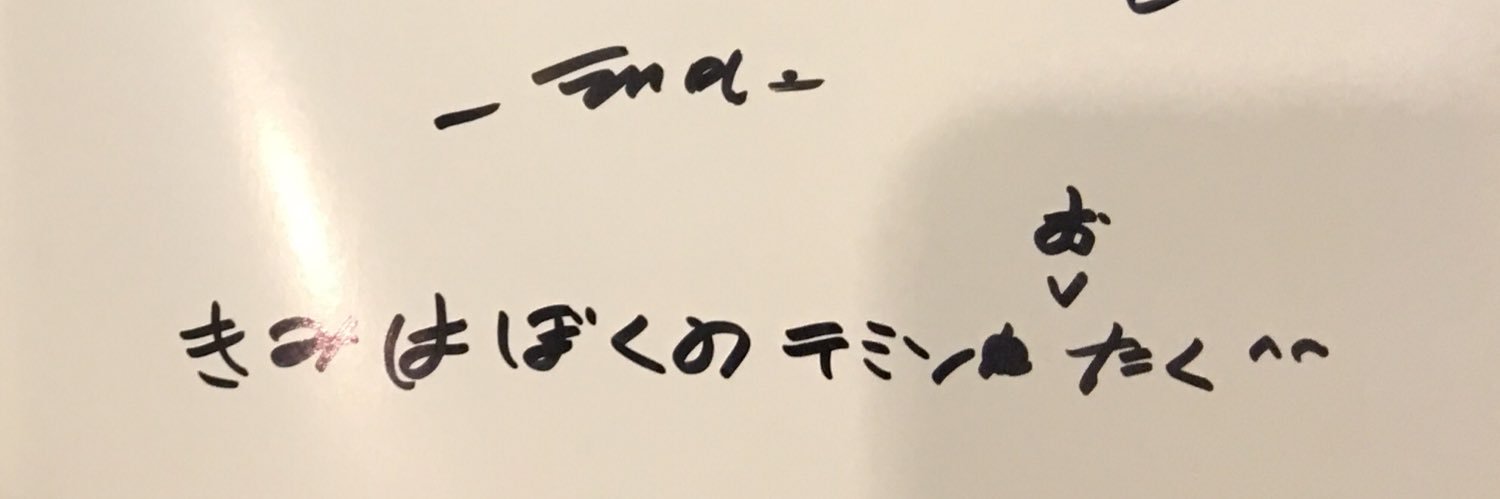 きみはぼくのテミンおたく^^